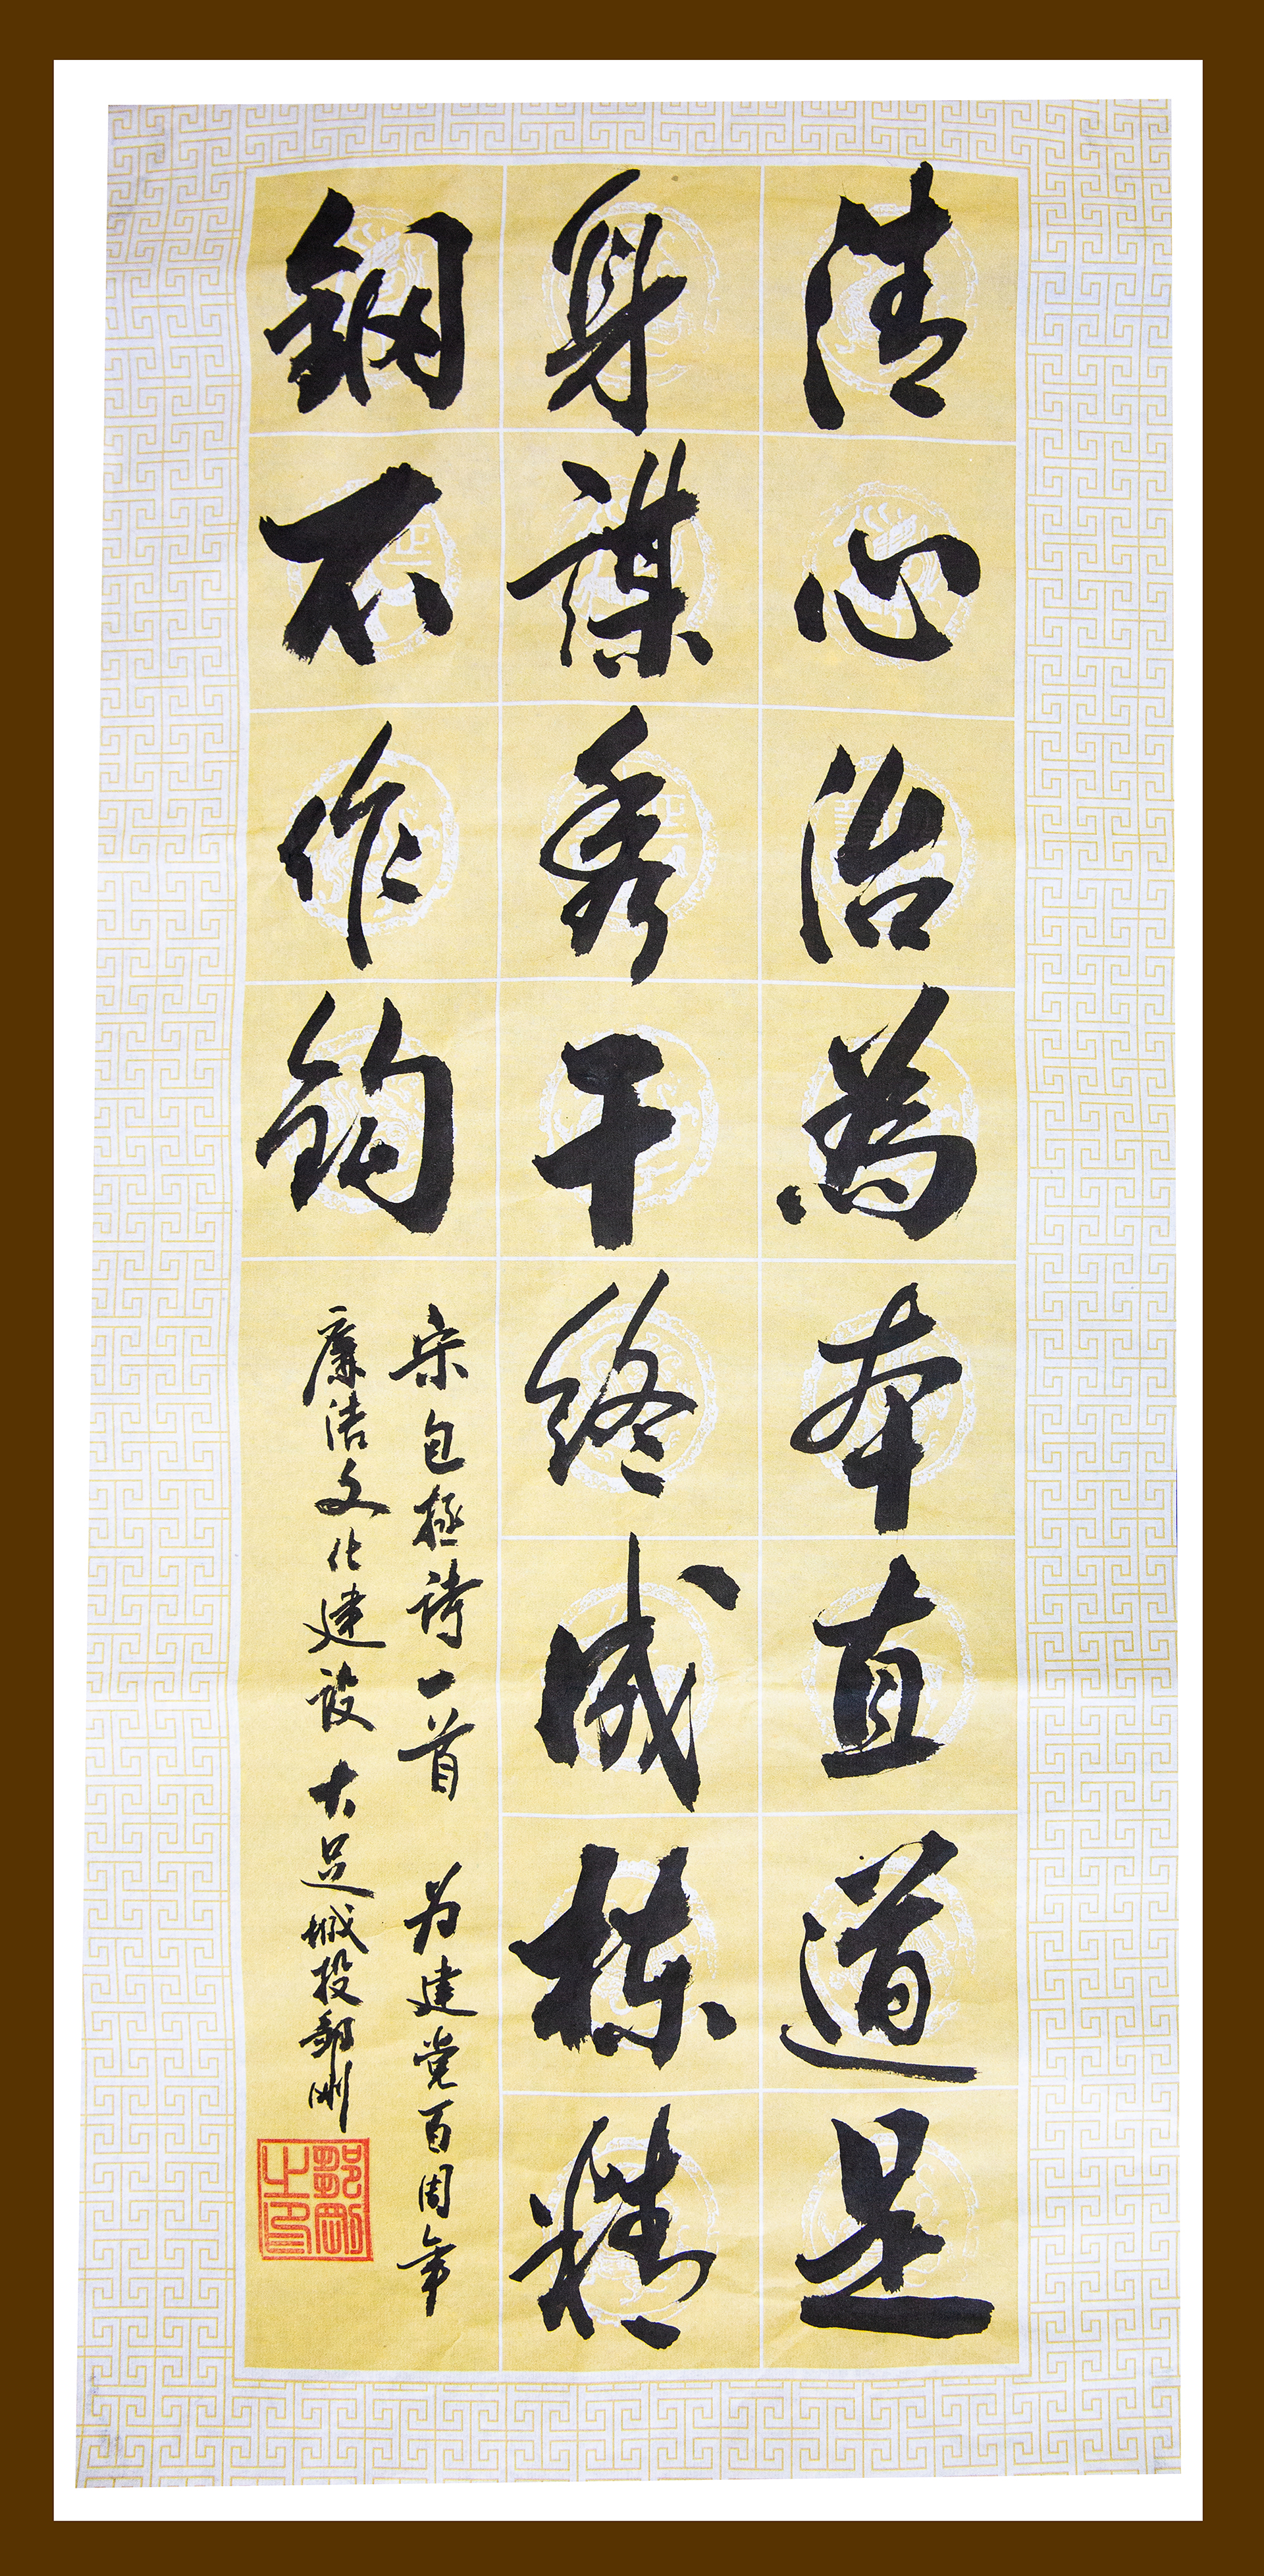 清心治為本直道是
身謀秀干終成棟精
鋼不作鈎
宋包拯詩一首 为建党百周年
廉洁文化建設 大足城投